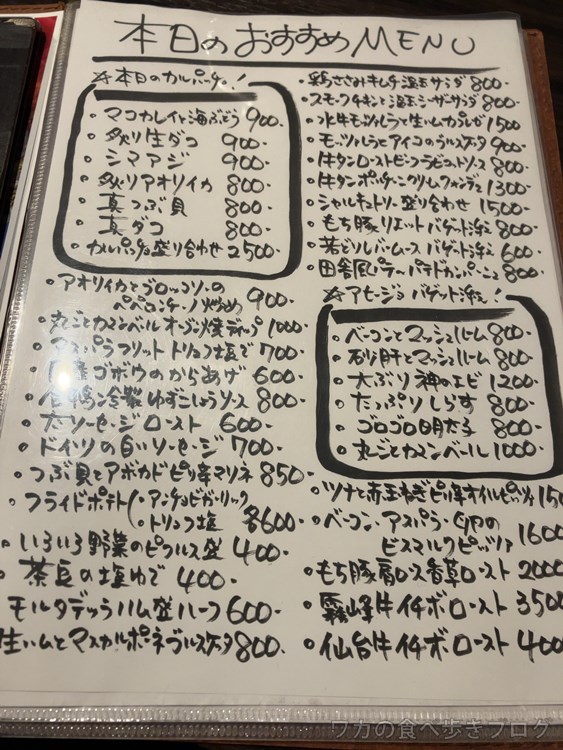 本日のおすすめMENU
☆本日のカルパッチョ!
・マコカレイと海ぶどう 900-
・炙り生ダコ 900-
・シマアジ 900-
・炙りアオリイカ 800-
・真つぶ貝 800-
・真ダコ 800-
・カルパッチョ盛り合わせ 2500-
・アオリイカとブロッコリーの
ペペロンチーノ炒め 900-
・丸ごとカマンベールオーブン焼ディップ 1000-
・アスパラフリット トリュフ塩で 700-
ゴボウのからあげ 600-
冷製ゆずこしょうソース 800-
・ソーセージロースト 600-
・ドイツの白いソーセージ 700-
・つぶ貝とアボカドピリ辛マリネ 850-
・フライドポテト(・アンチョビガーリック
・トリュフ塩 各600-
・いろいろ野菜のピクルス盛 400-
・茶豆の塩ゆで 400-
モルタデッラハム盛ハーフ 600-
生ハムとマスカルポーネブルスケッタ 800-
・鶏ささみキムチ温玉サラダ 800-
・スモークチキンと温玉シーザーサラダ 800-
・水牛モッツァレラと生ハムカプレーゼ 1500
・モッツァレラとアイコのブルスケッタ 900-
・牛タンローストビーフラビゴットソース 800-
・牛タンポルチーニクリームフォンデュ 1300-
・シャルキュトリー盛り合わせ 1500-
・もち豚リエット バゲット添え 800-
・若どりレバームース バゲット添え 600-
・田舎風パテ〜パテドカンパーニュ 800-
☆アヒージョ バゲット添え!
・ベーコンとマッシュルーム 800-
・砂肝とマッシュルーム 800-
・大ぶり神のエビ 1200-
・たっぷりしらす 800-
・ゴロゴロ明太子 800-
・丸ごとカマンベール 1000-
・ツナと赤玉ねぎピリ辛オイルピッツァ 150
・ベーコン・アスパラ・卵の
ビスマルクピッツァ 1600
・もち豚肩ロース香草ロースト 2000
・霧峰牛イチボロースト 3500
・仙台牛イチボロースト 400
ワカの食べ歩きブログ